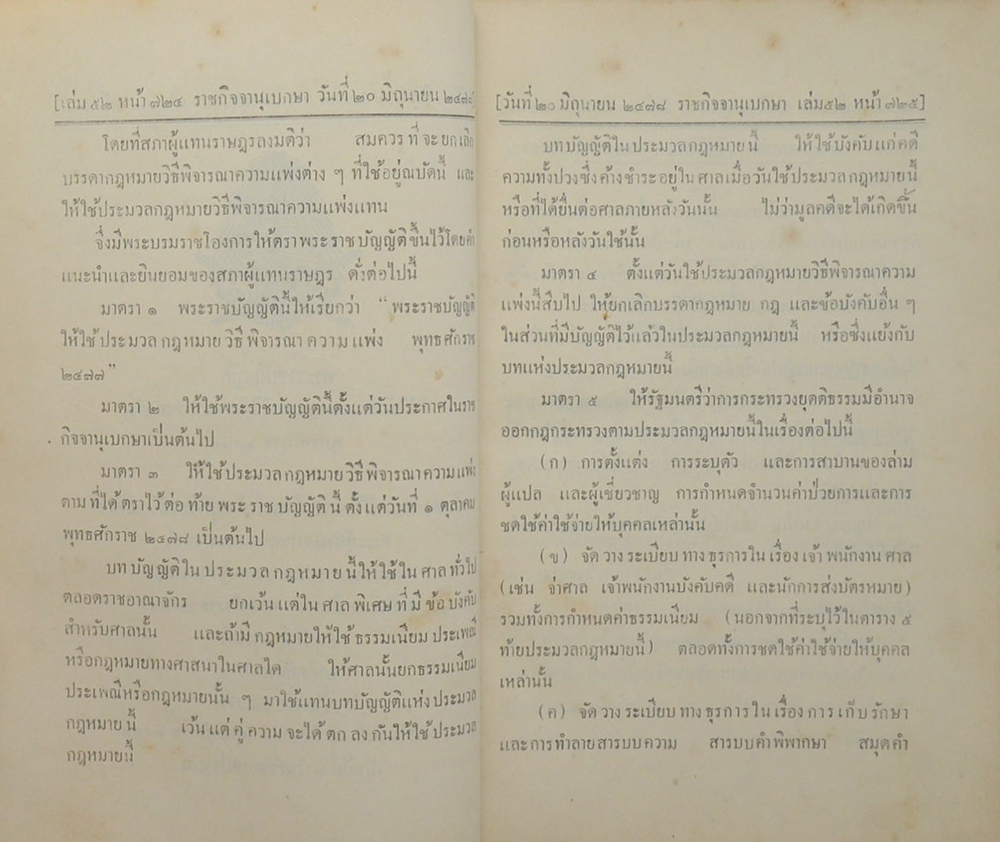 [เล่ม ๕๒ หน้า ๗๒๔ ราชกิจจานุเบกษา วันที่ ๒๐ มิถุนายน ๒๔๗๘]
โดยที่สภาผู้แทนราษฎรลงมติว่า สมควรที่จะยกเลิก
บรรดากฎหมายวิธีพิจารณาความแพ่งต่าง ๆ ที่ใช้อยู่ณบัดนี้ และ
ให้ใช้ประมวลกฎหมายวิธีพิจารณาความแพ่งแทน
จึ่งมีพระบรมราชโองการให้ตราพระราชบัญญัติขึ้นไว้โดยคำ
แนะนำและยินยอมของสภาผู้แทนราษฎร ดั่งต่อไปนี้
มาตรา ๑ พระราชบัญญัตินี้ให้เรียกว่า “พระราชบัญญัติ
ให้ใช้ประมวลกฎหมายวิธีพิจารณาความแพ่ง พุทธศักราช
๒๔๗๗”
มาตรา ๒ ให้ใช้พระราชบัญญัตินี้ตั้งแต่วันประกาศในราช
กิจจานุเบกษาเป็นต้นไป
มาตรา ๓ ให้ใช้ประมวลกฎหมายวิธีพิจารณาความแพ่ง
ตามที่ได้ตราไว้ต่อท้ายพระราชบัญญัตินี้ตั้งแต่วันที่ ๑ ตุลาคม
พุทธศักราช ๒๔๗๘ เป็นต้นไป
บทบัญญัติในประมวลกฎหมายนี้ให้ใช้ในศาลทั่วไป
ตลอดราชอาณาจักร ยกเว้นแต่ในศาลพิเศษที่มีข้อบังคับ
สำหรับศาลนั้น และถ้ามีกฎหมายให้ใช้ธรรมเนียมประเพณี
หรือกฎหมายทางศาสนาในศาลใด ให้ศาลนั้นยกธรรมเนียม
ประเพณีหรือกฎหมายนั้น ๆ มาใช้แทนบทบัญญัติแห่งประมวล
กฎหมายนี้ เว้นแต่คู่ความจะได้ตกลงกันให้ใช้ประมวล
กฎหมายนี้
[วันที่ ๒๐ มิถุนายน ๒๔๗๘ ราชกิจจานุเบกษา เล่ม ๕๒ หน้า ๗๒๕]
บทบัญญัติในประมวลกฎหมายนี้ ให้ใช้บังคับแก่คดี
ความทั้งปวงซึ่งค้างชำระอยู่ในศาลเมื่อวันใช้ประมวลกฎหมายนี้
หรือที่ได้ยื่นต่อศาลภายหลังวันนั้น ไม่ว่ามูลคดีจะได้เกิดขึ้น
ก่อนหรือหลังวันใช้นั้น
มาตรา ๔ ตั้งแต่วันใช้ประมวลกฎหมายวิธีพิจารณาความ
แพ่งนี้สืบไป ให้ยกเลิกบรรดากฎหมาย กฎ และข้อบังคับอื่น ๆ
ในส่วนที่มีบัญญัติไว้แล้วในประมวลกฎหมายนี้ หรือซึ่งแย้งกับ
บทแห่งประมวลกฎหมายนี้
มาตรา ๕ ให้รัฐมนตรีว่าการกระทรวงยุตติธรรมมีอำนาจ
ออกกฎกระทรวงตามประมวลกฎหมายนี้ในเรื่องต่อไปนี้
(ก) การตั้งแต่ง การระบุตัว และการสาบานของล่าม
ผู้แปล และผู้เชี่ยวชาญ การกำหนดจำนวนค่าป่วยการและการ
ชดใช้ค่าใช้จ่ายให้บุคคลเหล่านั้น
(ข) จัดวางระเบียบทางธุรการในเรื่องเจ้าพนักงานศาล
(เช่น จ่าศาล เจ้าพนักงานบังคับคดี และนักการส่งบัตรหมาย)
รวมทั้งการกำหนดค่าธรรมเนียม (นอกจากที่ระบุไว้ในตาราง ๕
ท้ายประมวลกฎหมายนี้) ตลอดทั้งการชดใช้ค่าใช้จ่ายให้บุคคล
เหล่านั้น
(ค) จัดวางระเบียบทางธุรการในเรื่องการเก็บรักษา
และการทำลายสารบบความ สารบบคำพิพากษา สมุดคำ